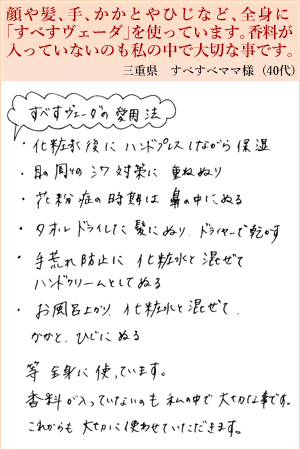 顔や髪、手、かかとやひじなど、全身に
「すべすヴェーダ」を使っています。香料が
入っていないのも私の中で大切な事です。
三重県　すべすべママ様（40代）
すべすヴェーダの愛用法
・化粧水後に ハンドプレスしながら保湿
・目の周りのシワ対策に 重ねぬり
・花粉症の時期は 鼻の中にぬる
・タオルドライした 髪にぬり、ドライヤーで乾かす
・手荒れ防止に 化粧水と混ぜて
ハンドクリームとしてぬる
・お風呂上がり、化粧水と混ぜて、
かかと、ひじにぬる
等 全身に使っています。
香料が入っていないのも 私の中で 大切な事です。
これからも 大切に使わせていただきます。